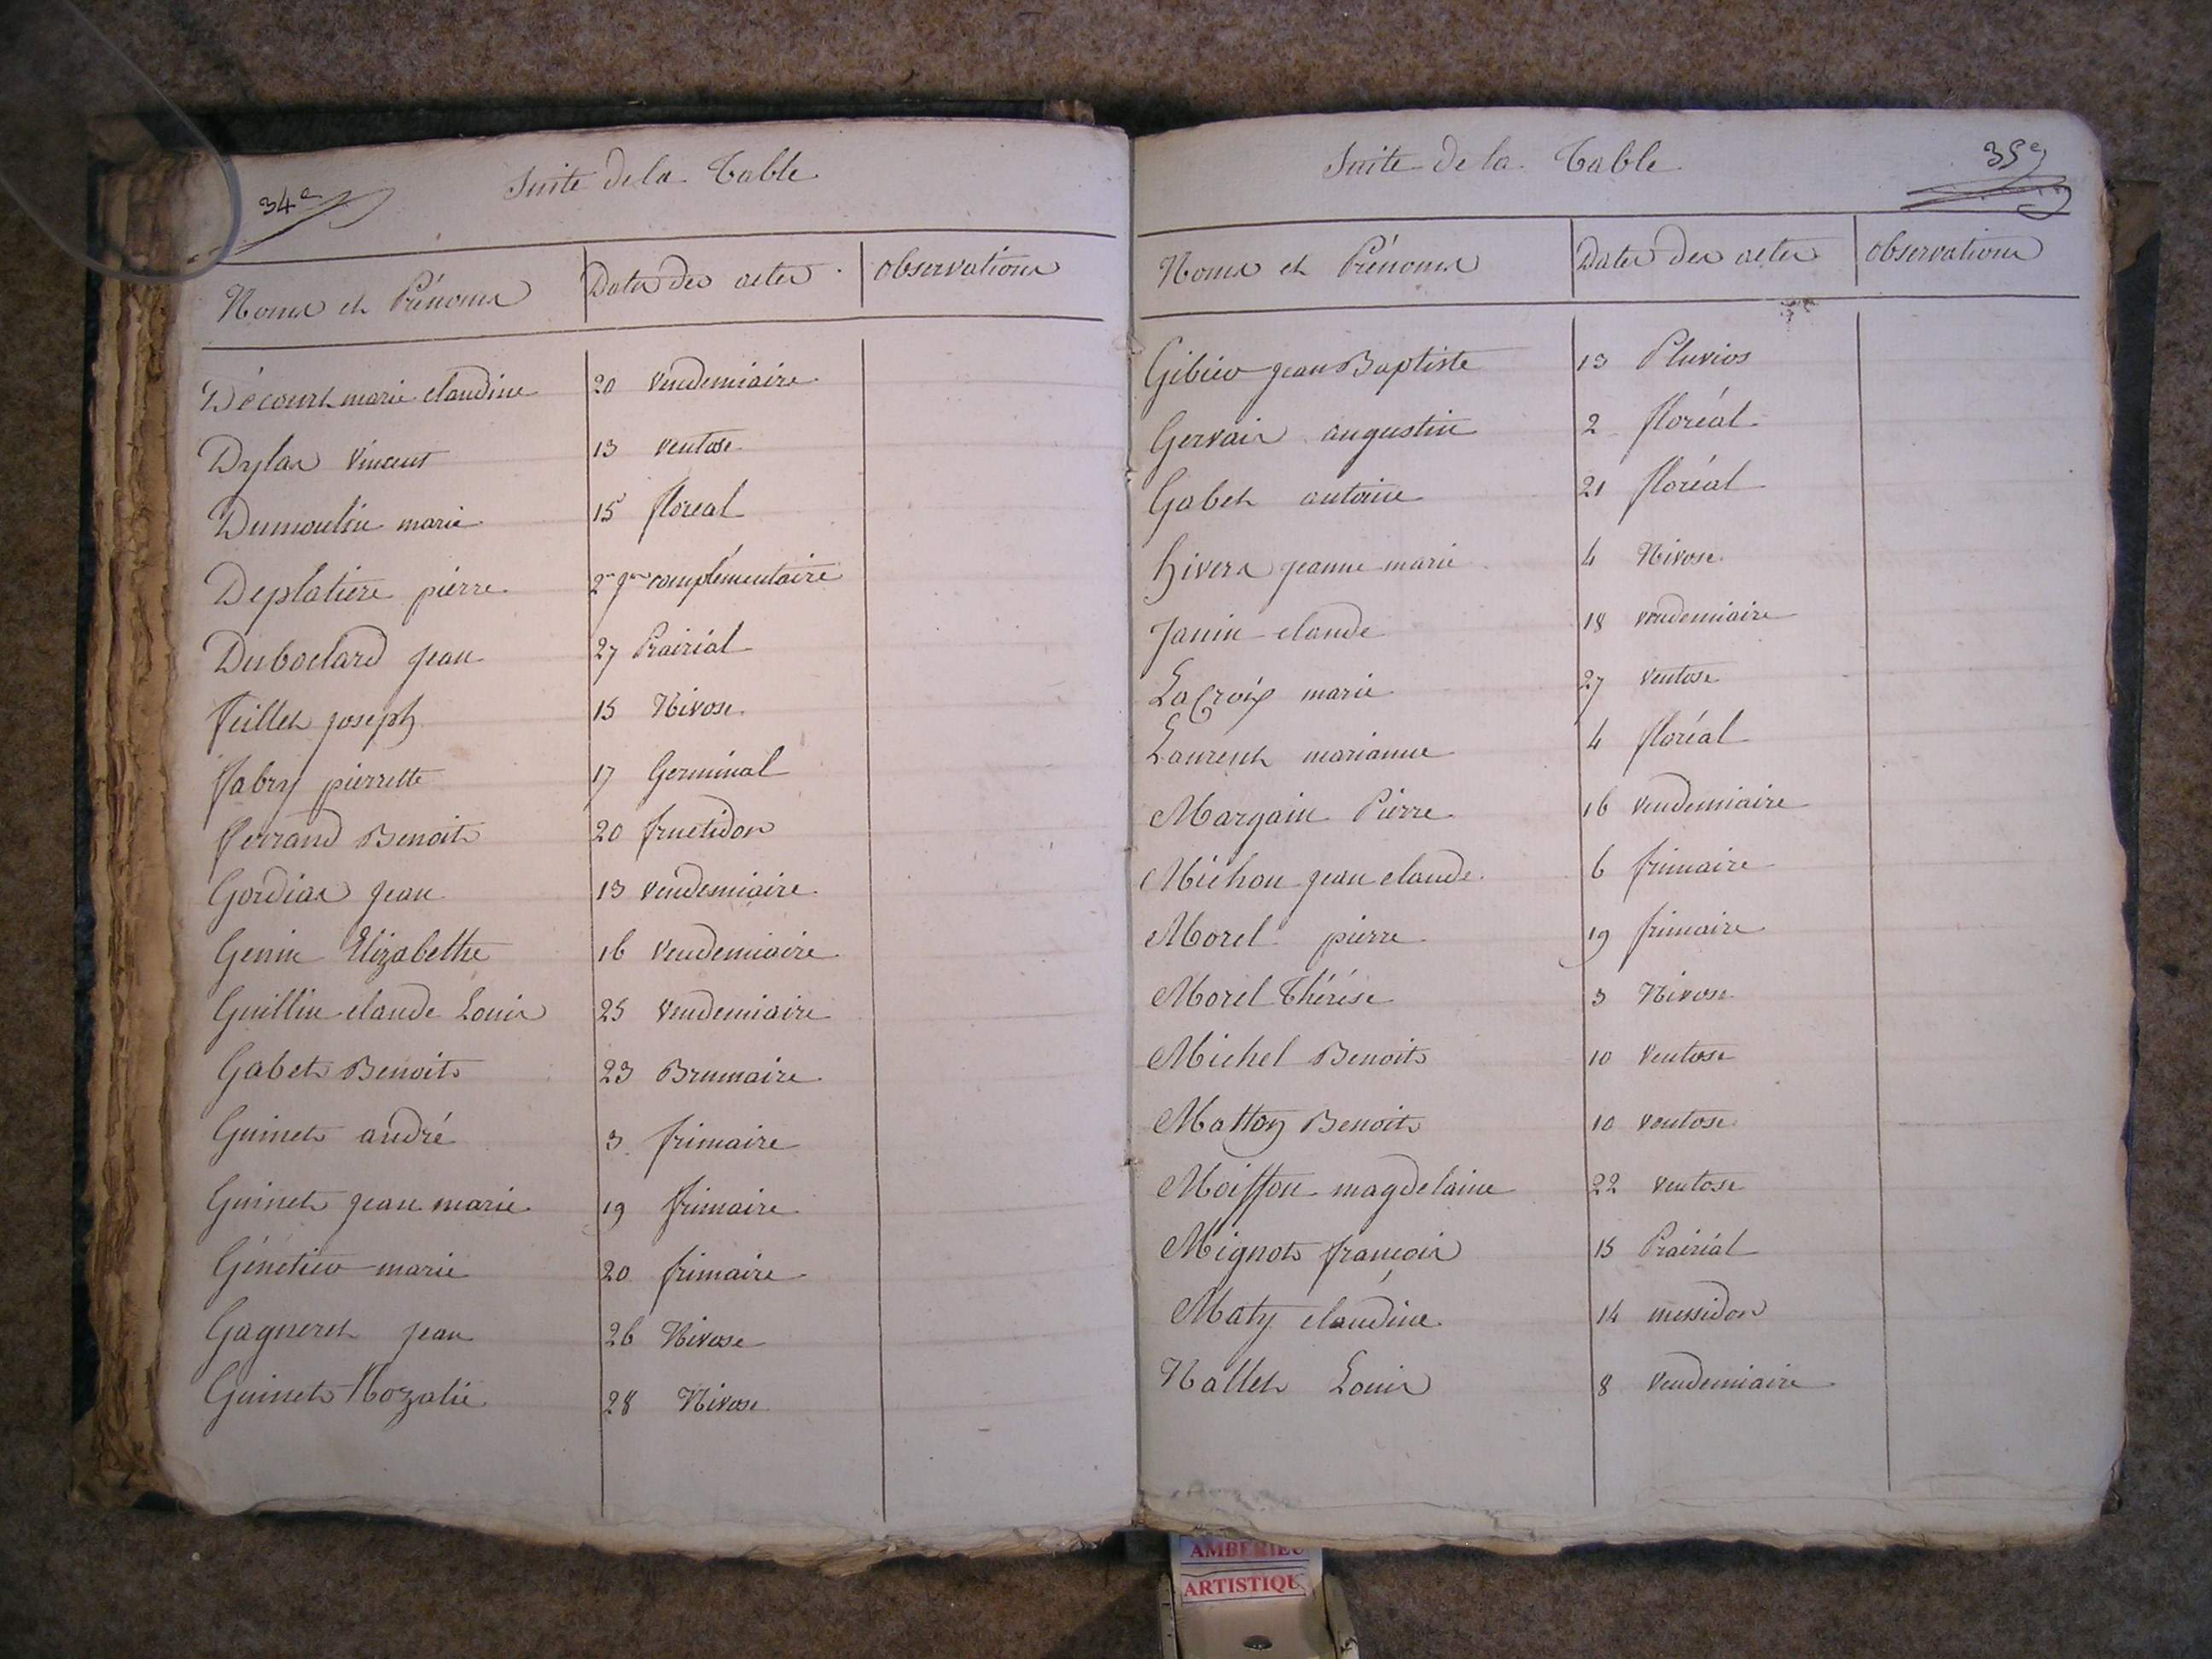 34e
Suite de la Table
Noms et Prénoms Dates des actes observations
Décourt marie claudine 20 vendemiaire
Dylas vincent 13 ventose
Dumoulin marie 15 floreal
Deplatiere pierre 2me jour complémentaire
Duboclard jean 27 Prairial
feillet joseph 15 Nivose
fabry pierrette 17 Germinal
ferrand Benoit 20 fructidor
Gordias jean 13 vendemiaire
Genin Elizabethe 16 vendemiaire
Guillin claude Louis 25 vendemiaire
Gabet Benoit 23 Brumaire
Guinet andré 3 frimaire
Guinet jean marie 19 frimaire
Génetieu marie 20 frimaire
Gagneret jean 26 Nivose
Guinet Rozalie 28 Nivose
35e
Suite de la Table
Noms et Prénoms Dates des actes observations
Gibieu jean Baptiste 13 Pluvios
Gervais augustin 2 floréal
Gabet antoine 21 floréal
hivers jeanne marie 4 Nivose
Janin claude 18 vendemiaire
LaCroix marie 27 ventose
Laurent marianne 4 floréal
Margain Pierre 16 vendemiaire
Michon jean claude 6 frimaire
Morel pierre 19 frimaire
Morel Thérése 3 Nivose
Michel Benoit 10 ventose
Matton Benoit 10 ventose
Moisson magdelaine 22 ventose
Mignot françois 15 Prairial
Maty claudine 14 messidor
Nallet Louis 8 vendemiaire
AMBERIEU
ARTISTIQU